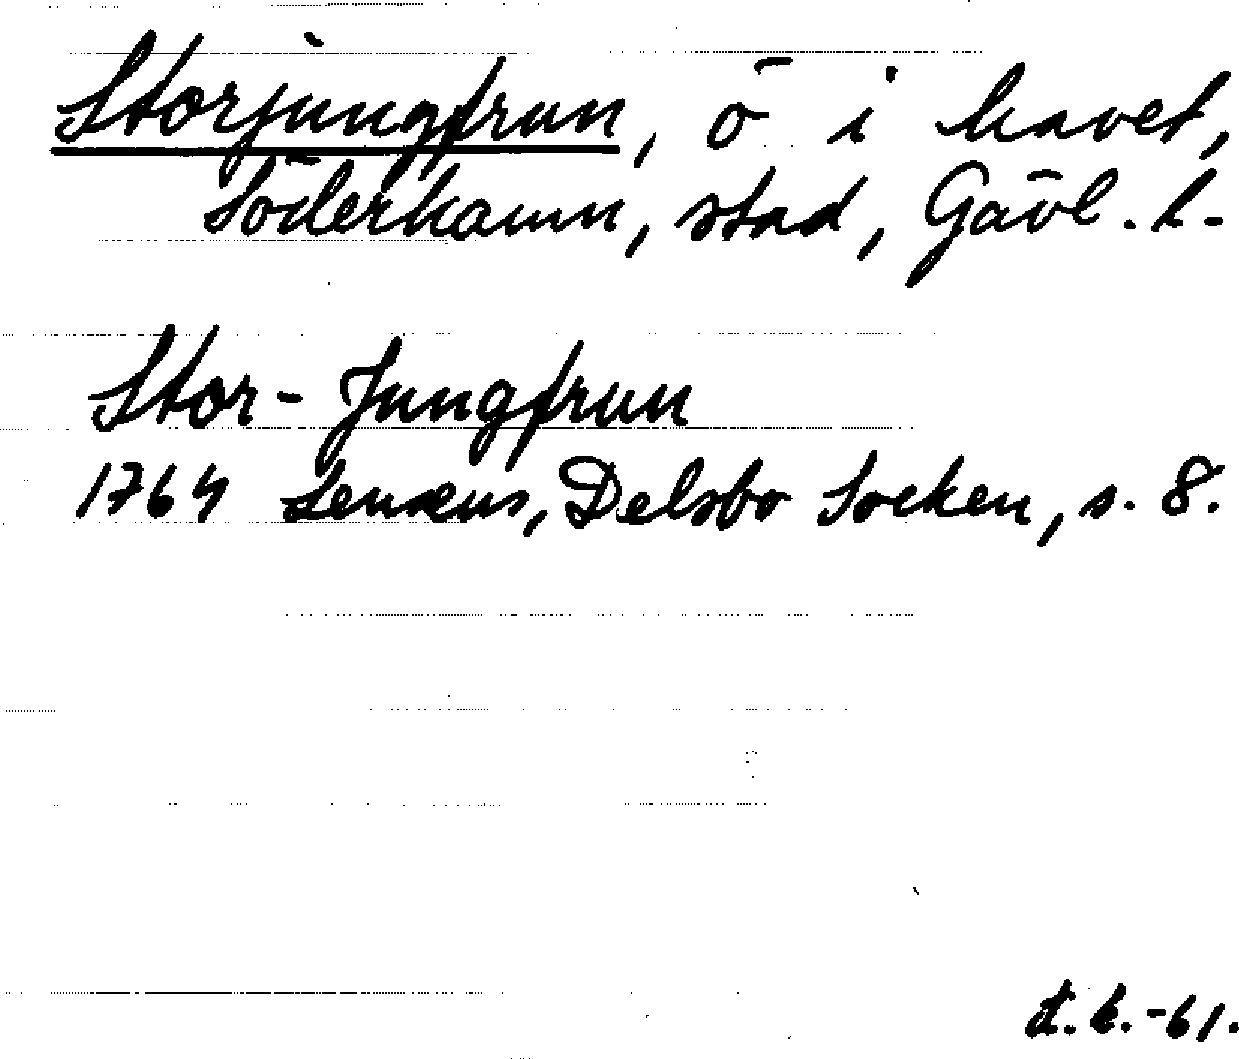 Storjungfrun, ö i havet,
Söderhamn, stad, Gävl. l.
Stor-Jungfrun
1764 Lenæus, Delsbo Socken, s. 8.
-61.